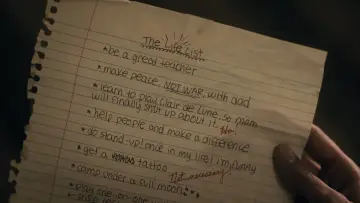 The Life List
* be a great teacher
* make peace, NOT WAR, with dad
* learn to play Clair de Lune so mom
will finally shut up about it No!
* help people and make a difference
* do stand up! once in my life! I'm funny
* get a tattoo
Not necessary!
* camp under a full moon
* play one-on-one